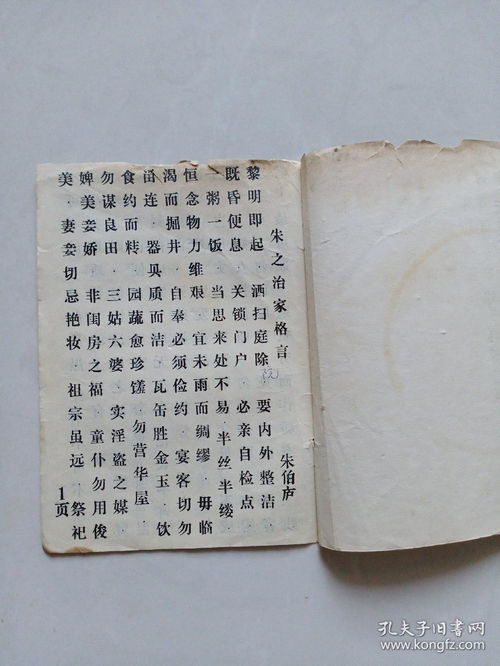 朱之治家格言
朱伯庐
黎明即起·洒扫庭除·要内外整洁
院
既昏便息·关锁门户·必亲自检点
一粥一饭·当思来处不易·半丝半缕
恒念物力维艰·宜未雨而绸缪·毋临
渴而掘井·自奉必须俭约·宴客切勿
连·器具质而洁·瓦缶胜金玉·饮
食约而精·园蔬愈珍馐·勿营华屋·
勿谋良田·三姑六婆·实淫盗之媒·
婢美妾娇·非闺房之福·童仆勿用俊
美·妻妾切忌艳妆·祖宗虽远·祭祀
1页
孔夫子旧书网
www.kongfz.com